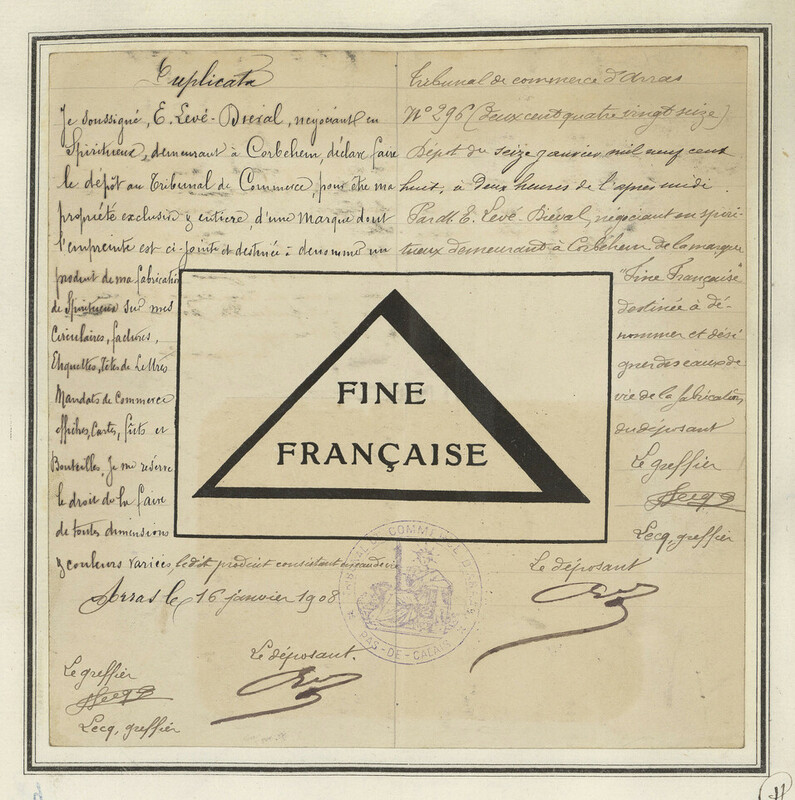 Duplicata
Je soussigné, E. Levé-Bréval, négociant en
Spiritueux, demeurant à Corbehem, déclare faire
le dépôt au Tribunal de Commerce, pour être ma
propriété exclusive & entière, d'une Marque dont
l'empreinte est ci-jointe et destinée à dénommer un
produit de ma fabrication
de Spiritueux sur mes
Circulaires, factures,
Etiquettes, Têtes de Lettres
Mandats de Commerce
affiches, Cartes, fûts et
Bouteilles. Je me réserve
le droit de la faire
de toutes dimensions
& couleurs variées, le dit produit consistant en eau de vie
Arras le 16 janvier 1908
Le greffier
Lecq, greffier
Le déposant.
Tribunal de commerce d'Arras
N° 296 (deux cent quatre vingt seize)
Dépôt du seize janvier mil neuf cent
huit, à deux heures de l'après midi
Par M. E. Levé-Bréval, négociant en spiri-
tueux demeurant à Corbehem, de la marque
"Fine Française"
destinée à dé-
nommer et dési
gner des eaux de
vie de la fabrication
du déposant
Le greffier
Lecq, greffier
Le déposant
FINE
FRANÇAISE
TRIBUNAL DE COMMERCE D'ARRAS
PAS-DE-CALAIS